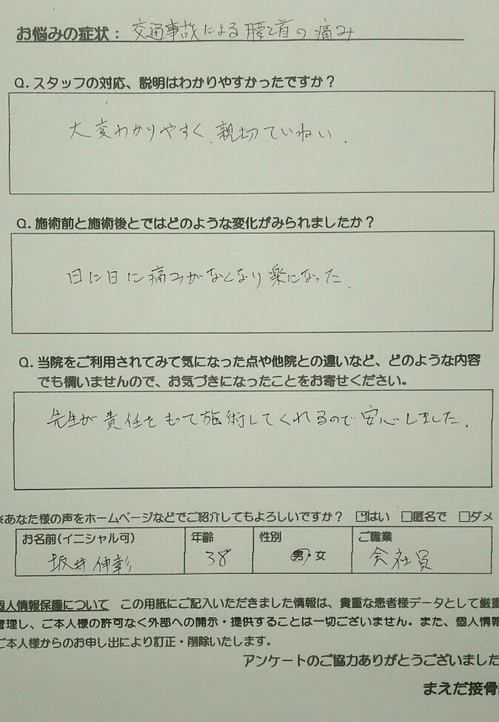 お悩みの症状：交通事故による腰と首の痛み
Q. スタッフの対応、説明はわかりやすかったですか？
大変わかりやすく、親切ていねい.
Q. 施術前と施術後とではどのような変化がみられましたか？
日に日に痛みがなくなり楽になった.
Q. 当院をご利用されてみて気になった点や他院との違いなど、どのような内容
でも構いませんので、お気づきになったことをお寄せください。
先生が責任をもって施術してくれるので安心しました.
※あなた様の声をホームページなどでご紹介してもよろしいですか？ ☑はい □匿名で □ダメ
お名前(イニシャル可) 年齢 性別 ご職業
坂井伸彰 38 男・女 会社員
個人情報保護について この用紙にご記入いただきました情報は、貴重な患者様データとして厳重
管理し、ご本人様の許可なく外部への開示・提供することは一切ございません。また、個人情報
ご本人様からのお申し出により訂正・削除いたします。
アンケートのご協力ありがとうございました
まえだ接骨